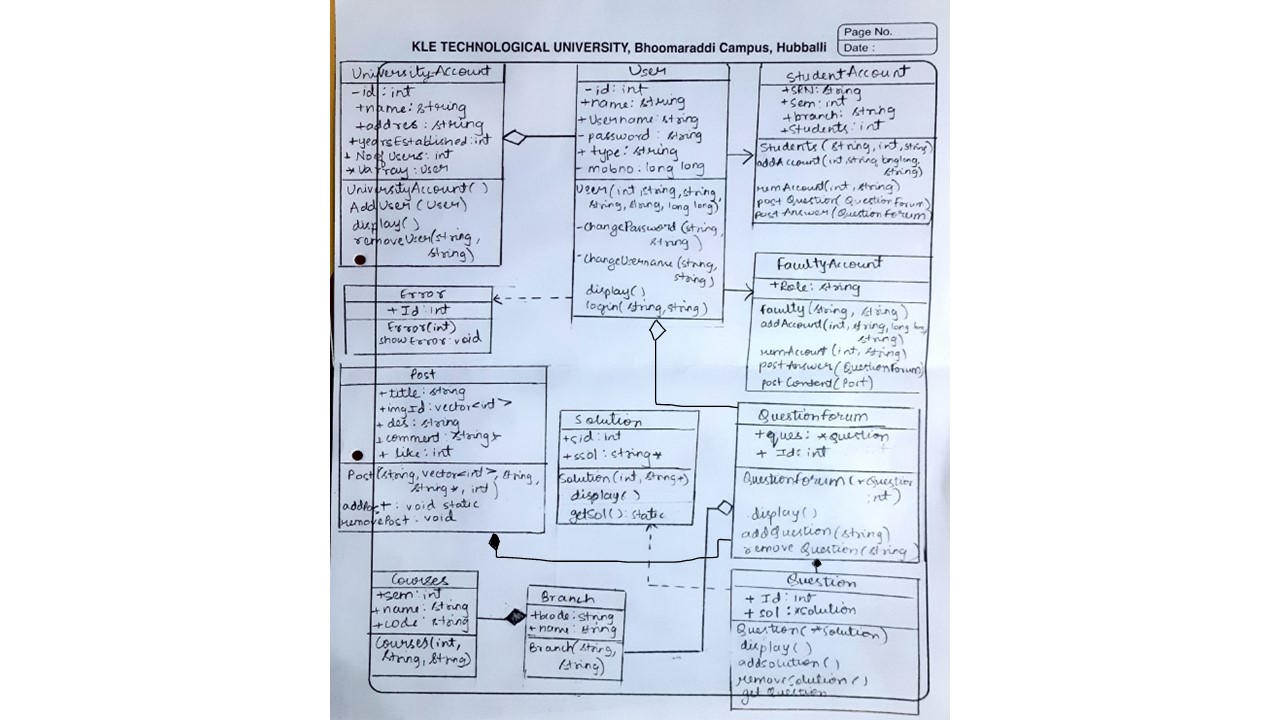 Page No.
Date :
KLE TECHNOLOGICAL UNIVERSITY, Bhoomaraddi Campus, Hubballi
UniversityAccount
- id : int
+ name : string
+ addres : string
+ yearsEstablished : int
+ No of Users : int
UniversityAccount( )
Add User ( User)
display( )
removeUser(string,
string)
User
- id : int
+ name : string
+ Username : string
- password : string
+ type : string
- mobno : long long
User (int, string, string,
string, string, long long)
- changePassword (string,
string )
- changeUsername (string,
string)
display( )
login( string, string)
StudentAccount
+ SRN : string
+ sem : int
+ branch : string
+ Students : int
Students ( string, int, string)
addAccount (int, string, long long,
string)
remAccount (int, string)
post Question( QuestionForum)
post Answer (Question Forum)
FacultyAccount
+ Role : string
faculty (string, string)
addAccount(int, string, long long,
string)
remAccount (int, string)
postAnswer (QuestionForum)
post Content ( Post)
Error
+ Id : int
Error(int)
showError : void
Post
+ title : string
+ imgId : vector<int>
+ des : string
+ comment : string*
+ like : int
Post (string, vector<int>, string,
string*, int)
addPost : void static
removePost : void
Solution
+ sid : int
+ ssol : string*
Solution (int, string*)
display( )
getSol( ) : static
QuestionForum
+ ques : *question
+ Id : int
QuestionForum (*Question
int)
display( )
addQuestion (string)
remove Question (string)
Courses
+ sem : int
+ name : string
+ code : string
Courses (int,
string, string)
Branch
+ bcode : string
+ name : string
Branch (string,
string)
Question
+ Id : int
+ sol : *solution
Question( *solution)
display( )
addsolution ( )
removesolution ( )
get Question